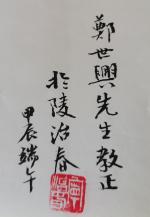 鄭世興先生教正
於陵治春
甲辰端午